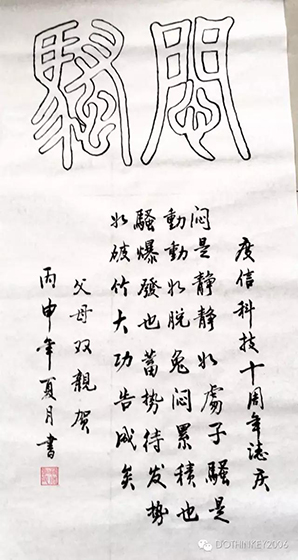 悶騷
度信科技十周年誌庆
闷是静静如處子騷是
動動如脱兔闷累積也
騷爆發也蓄势待发势
如破竹大功告成矣
父母双親贺
丙申年夏月書
DOTHINKEY2006